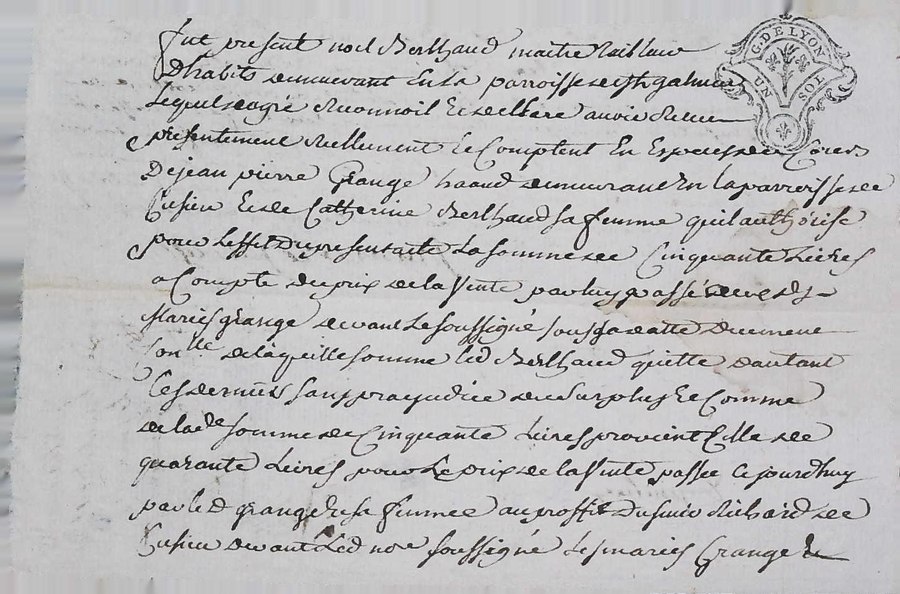 fut present noel Berthaud maitre tailleur
Dhabits demeurant En la parroisse de St galmier
Lequel de gré Reconnoit Et Confesse avoir Receu
presentement Reellement Et Comptent En Especes de Cours
De jean pierre Grange demeurant En la parroisse de
Cusieu Et de Catherine Berthaud sa femme quil authorise
pour Leffet du present acte La somme de Cinquante Livres
a Compte du prix de la Vente par luy passée
Mariés grange devant Le soussigné sous sa datte
de laquelle somme led Berthaud quitte dautant
Ces derniers sans prejudice du surplus Et Comme
de lade somme de Cinquante Livres provient Celle de
quarante Livres pour Le prix de la Vente passée Cejourdhuy
par led grange Et sa femme au proffit Richard de
Cusieu devant Led nore soussigné Les mariés Grange
G. DE LYON
UN SOL